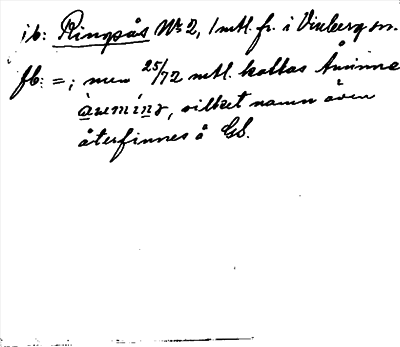 jb: Ringpås Nr 2, 1 mtl. fr. i Vinberg sn.
fb: =; men 25/72 mtl. kallas Åminne
àumínɡ, vilket namn även
återfinnes å GS.